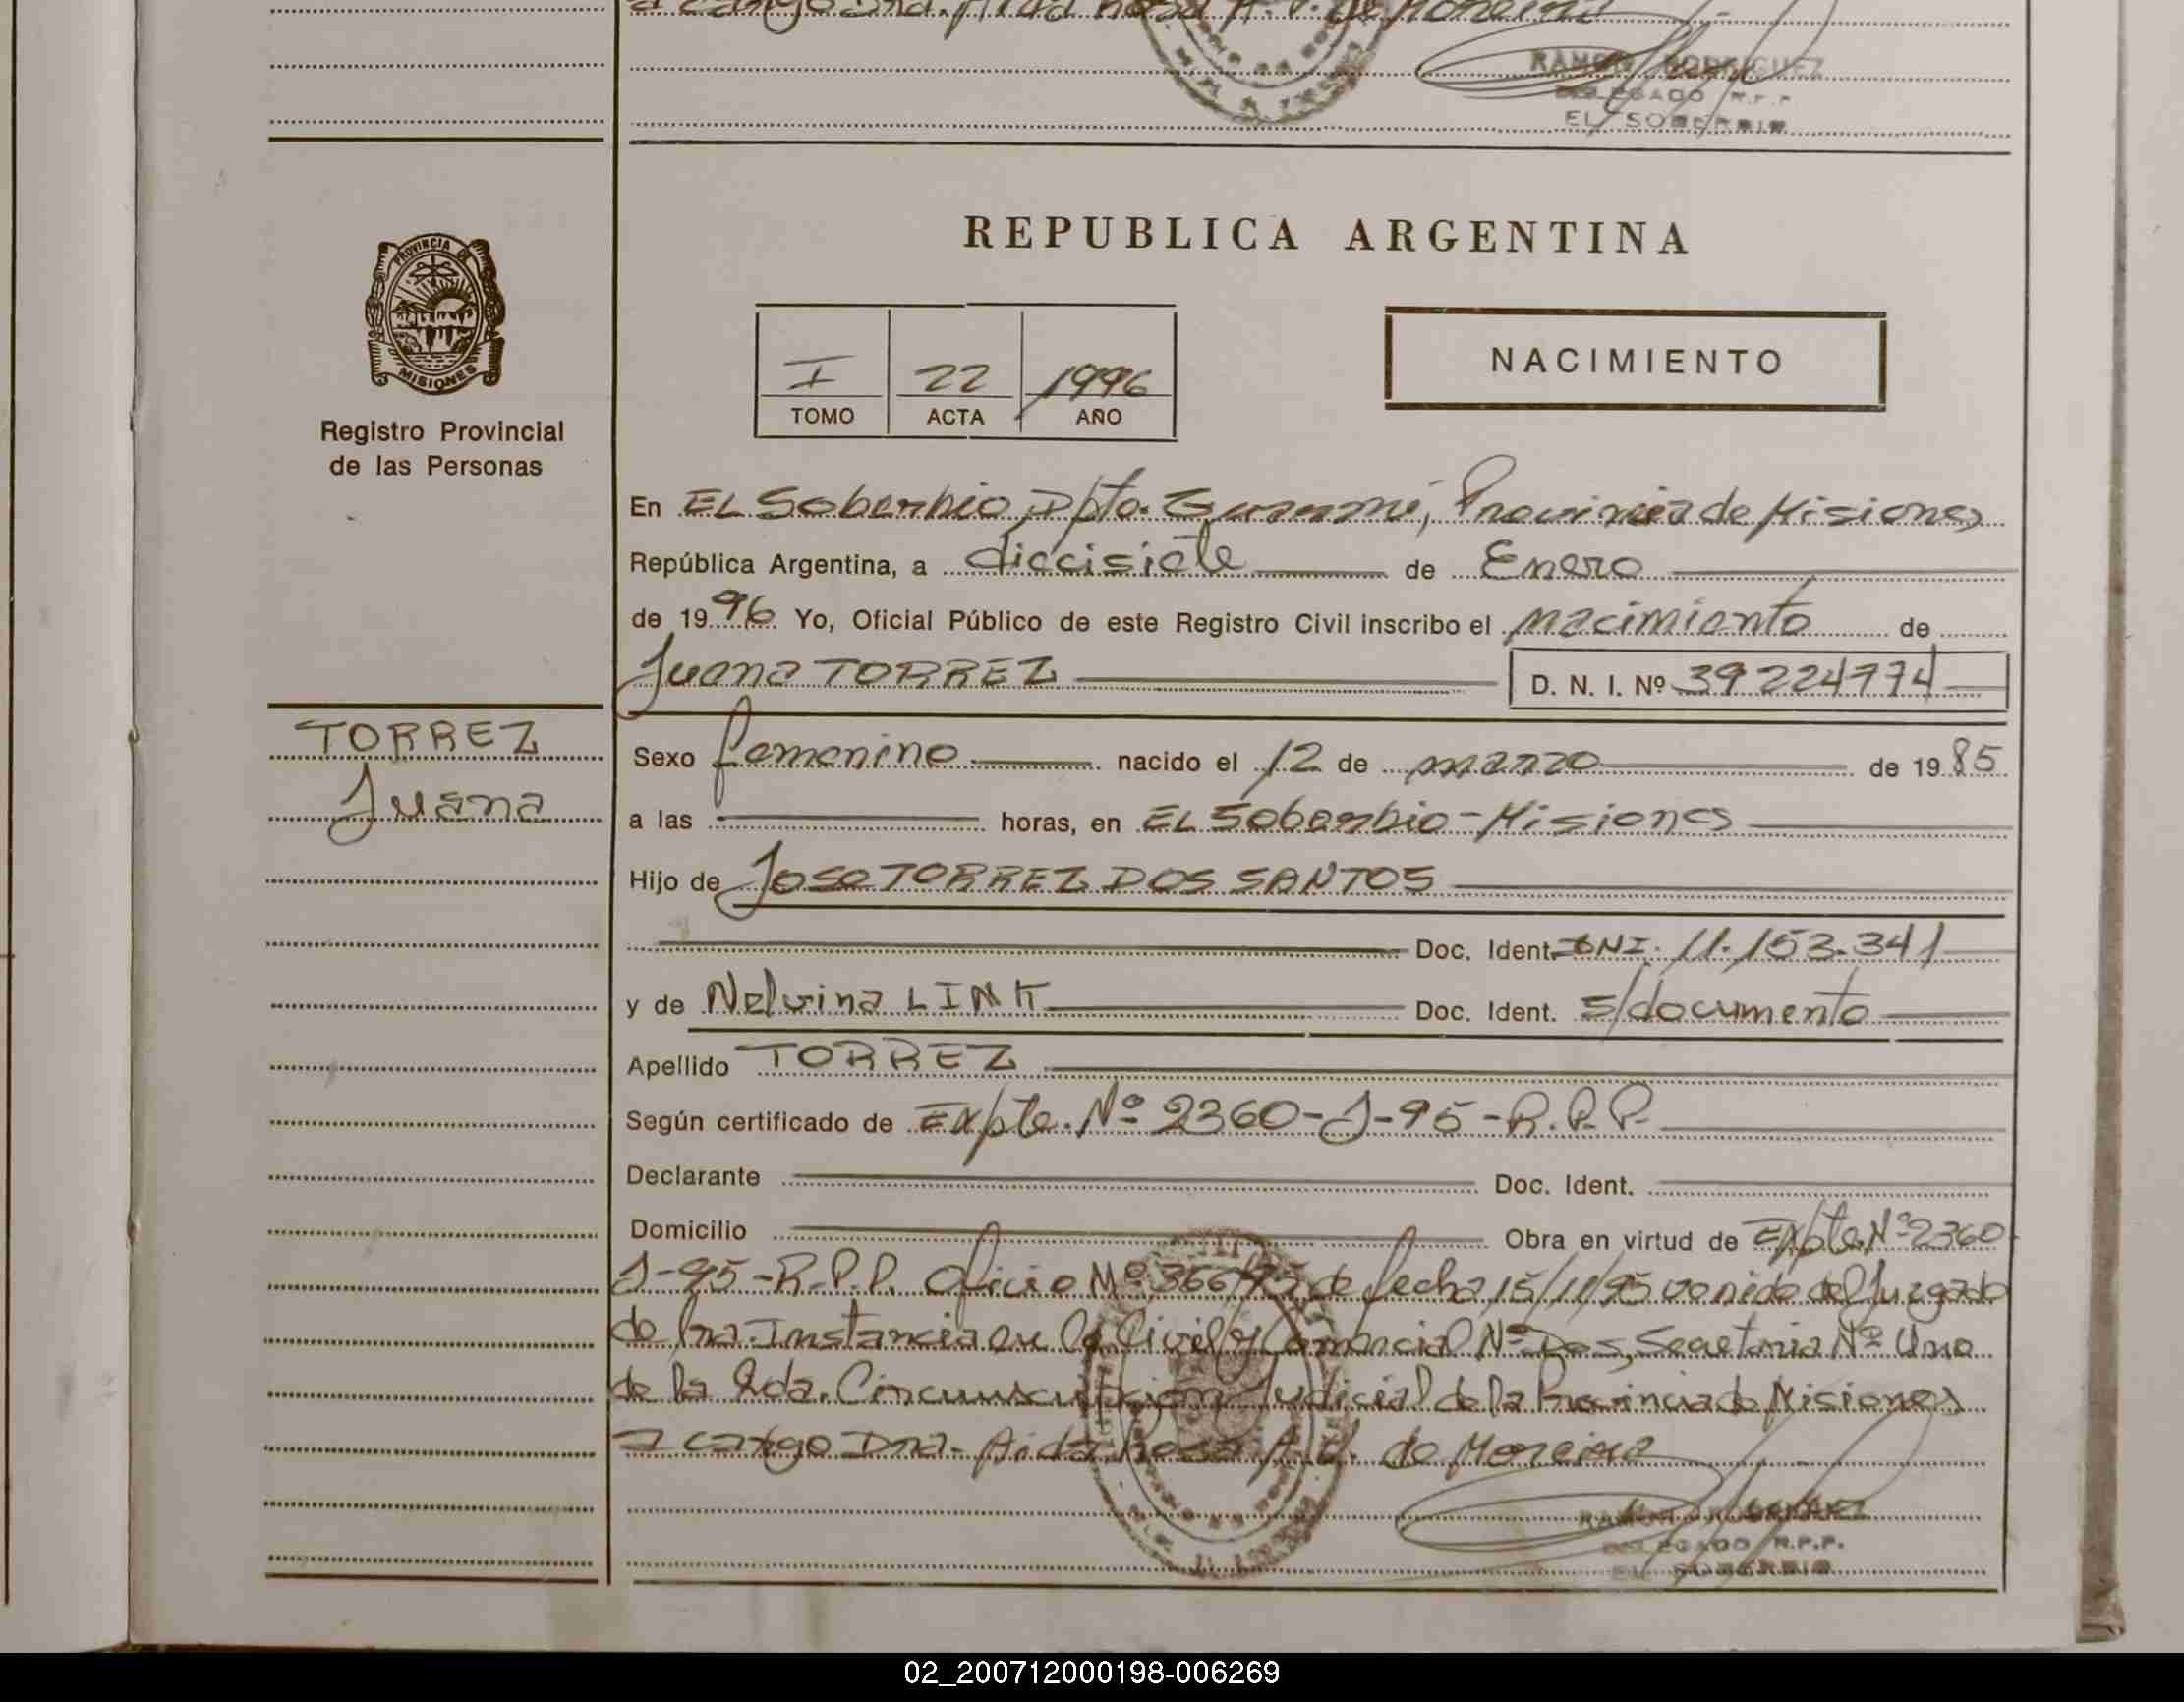 a cargo Dra. Aida Rosa A. V. de Moreira
RAMON RODRIGUEZ
DELEGADO R.P.P.
EL SOBERBIO
PROVINCIA DE
MISIONES
Registro Provincial
de las Personas
REPUBLICA ARGENTINA
I 22 1996
TOMO ACTA AÑO
NACIMIENTO
En EL Soberbio, Dpto. Guaraní, Provincia de Misiones
República Argentina, a diecisiete de Enero
de 1996 Yo, Oficial Público de este Registro Civil inscribo el nacimiento de
Juana TORREZ D. N. I. Nº 39224774
TORREZ
Juana
Sexo femenino nacido el 12 de marzo de 1985
a las horas, en EL Soberbio - Misiones
Hijo de Jose TORREZ DOS SANTOS
Doc. Ident. DNI. 11.153.341
y de Nelvina LINK Doc. Ident. s/documento
Apellido TORREZ
Según certificado de Expte. Nº 2360-J-95-R.P.P.
Declarante Doc. Ident.
Domicilio Obra en virtud de Expte Nº 2360
J-95-R.P.P. Oficio Nº 366/95 de fecha 15/11/95 venido del Juzgado
de 1ra. Instancia en lo Civil y Comercial Nº Dos, Secretaria Nº Uno
de la 2da. Circunscripcion Judicial de la Provincia de Misiones
a cargo Dra. Aida Rosa A. V. de Moreira
RAMON RODRIGUEZ
DELEGADO R.P.P.
EL SOBERBIO
02_200712000198-006269